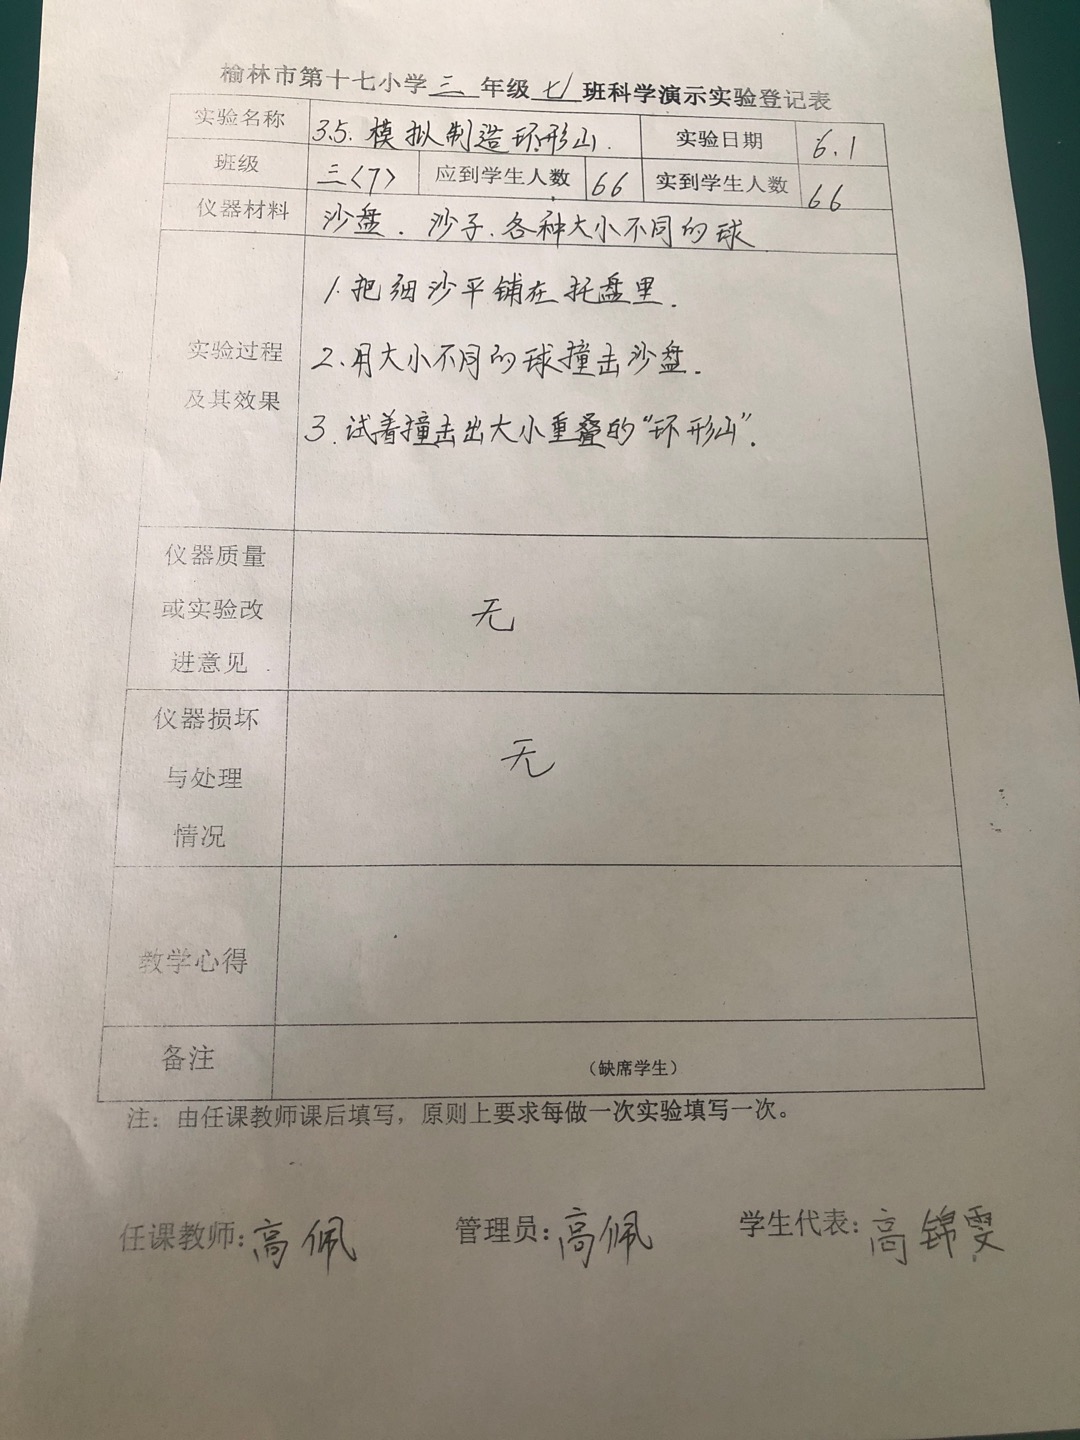 榆林市第十七小学三年级七班科学演示实验登记表
实验名称 3.5.模拟制造环形山. 实验日期 6.1
班级 三〈7〉 应到学生人数 66 实到学生人数 66
仪器材料 沙盘.沙子.各种大小不同的球
实验过程
及其效果
1.把细沙平铺在托盘里.
2.用大小不同的球撞击沙盘.
3.试着撞击出大小重叠的“环形山”.
仪器质量
或实验改
进意见.
无
仪器损坏
与处理
情况
无
教学心得
备注 (缺席学生)
注：由任课教师课后填写，原则上要求每做一次实验填写一次。
任课教师:高佩 管理员:高佩 学生代表:高锦雯